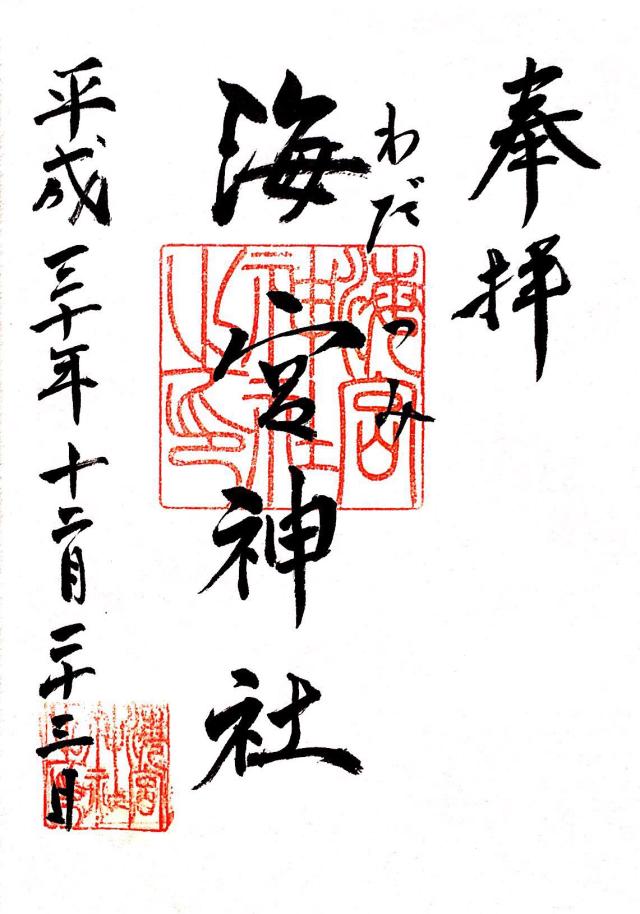 奉拝
わだつみ
海宮神社
海宮神社之印
平成三十年十二月二十三日